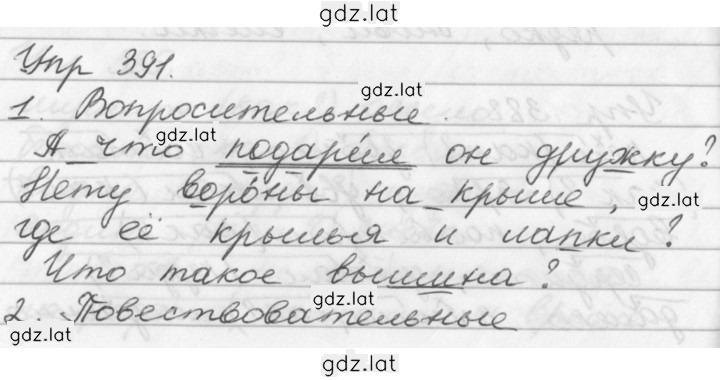 gdz.lat
Упр 391.
1. Вопросительные.
gdz.lat
gdz.lat
А что подарил он дружку?
Нету вороны на крыше,
gdz.lat
где её крылья и лапки?
Что такое вышина?
gdz.lat
2. Повествовательные
gdz.lat
gdz.lat